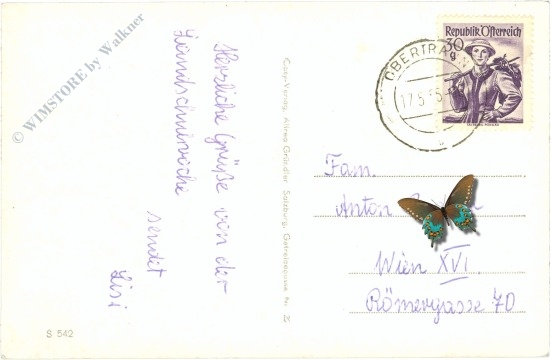 © WIMSTORE by Walkner
Herzliche Grüße von der
sendet
Lisi
Cosy-Verlag, Alfred Gründler Salzburg, Getreidegasse Nr.
S 542
Republik Österreich
30
g
OBERTRAUN
17.5.55
b
Fam.
Anton
Wien XVI.
Römergasse 70